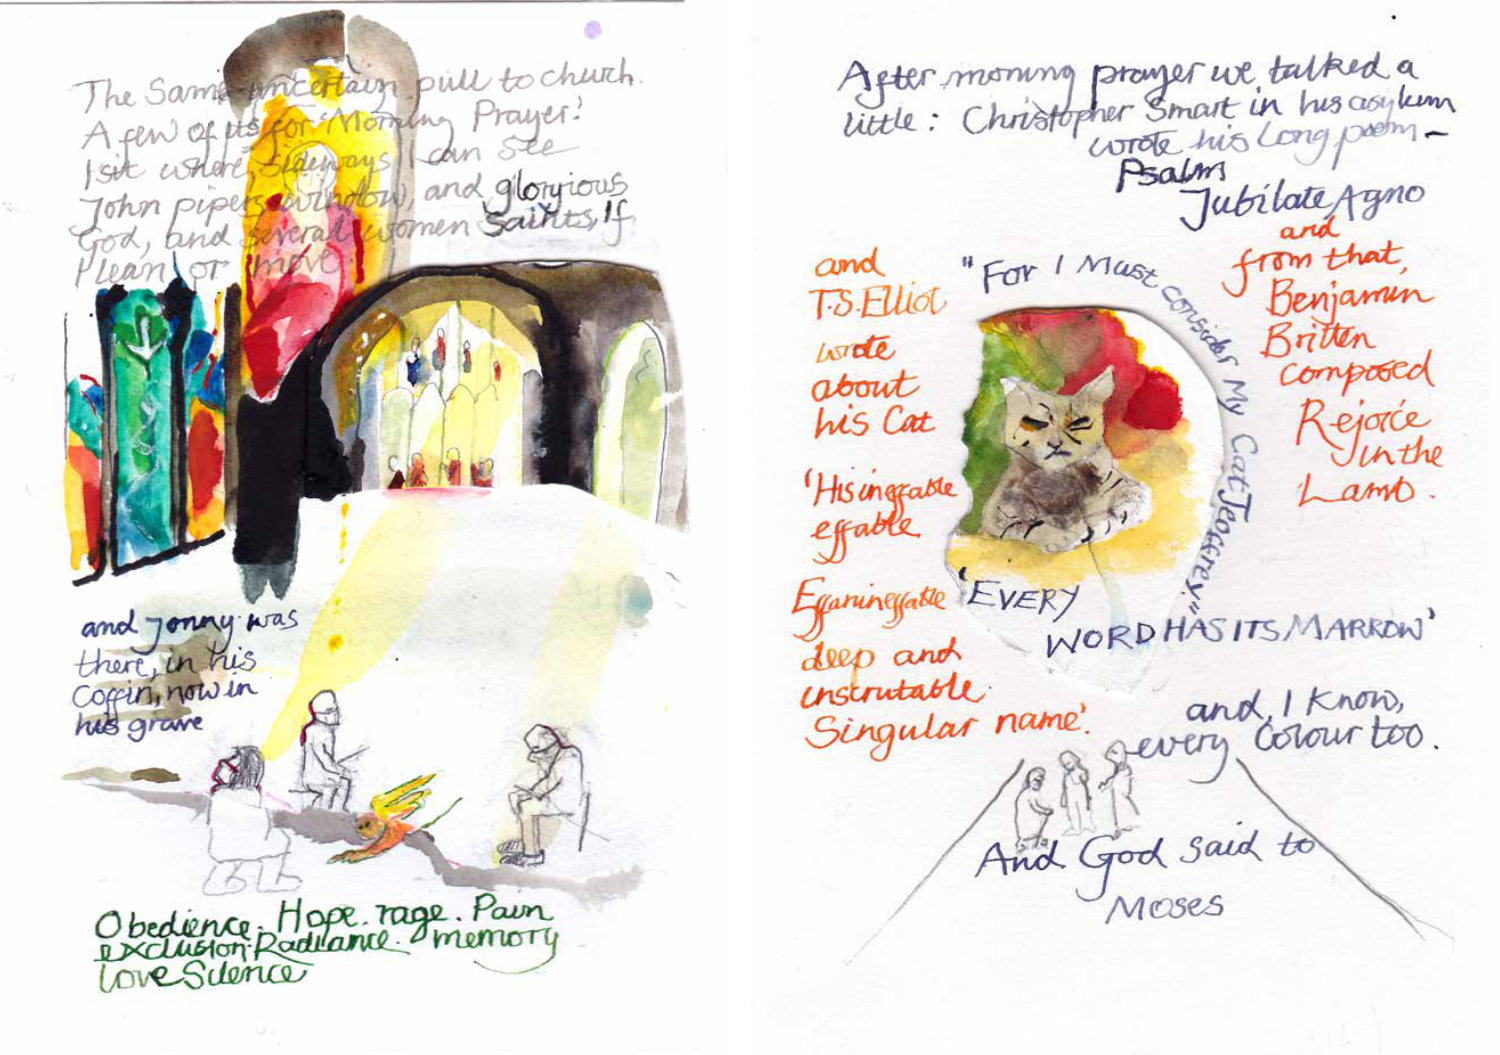 The Same uncertain pull to church.
A few of us for 'Morning Prayer'.
I sit where, sideways I can see
John pipers window, and gloryious
God, and several women Saints, If
I lean or move
and Jonny was
there, in his
Coffin, now in
his grave
Obedience. Hope. rage. Pain
exclusion. Radiance. memory
love Silence
After morning prayer we talked a
little: Christopher Smart in his asylum
wrote his long poem -
Psalm
Jubilate Agno
and
from that,
Benjamin
Britten
composed
Rejoice
in the
Lamb.
and
T.S. Elliot
wrote
about
his Cat
'His ineffable
effable
Effanineffable
deep and
inscrutable
Singular name'.
"For I Must consider My Cat Jeoffrey"
'EVERY
WORD HAS ITS MARROW'
and, I know,
every Colour too.
And God said to
Moses